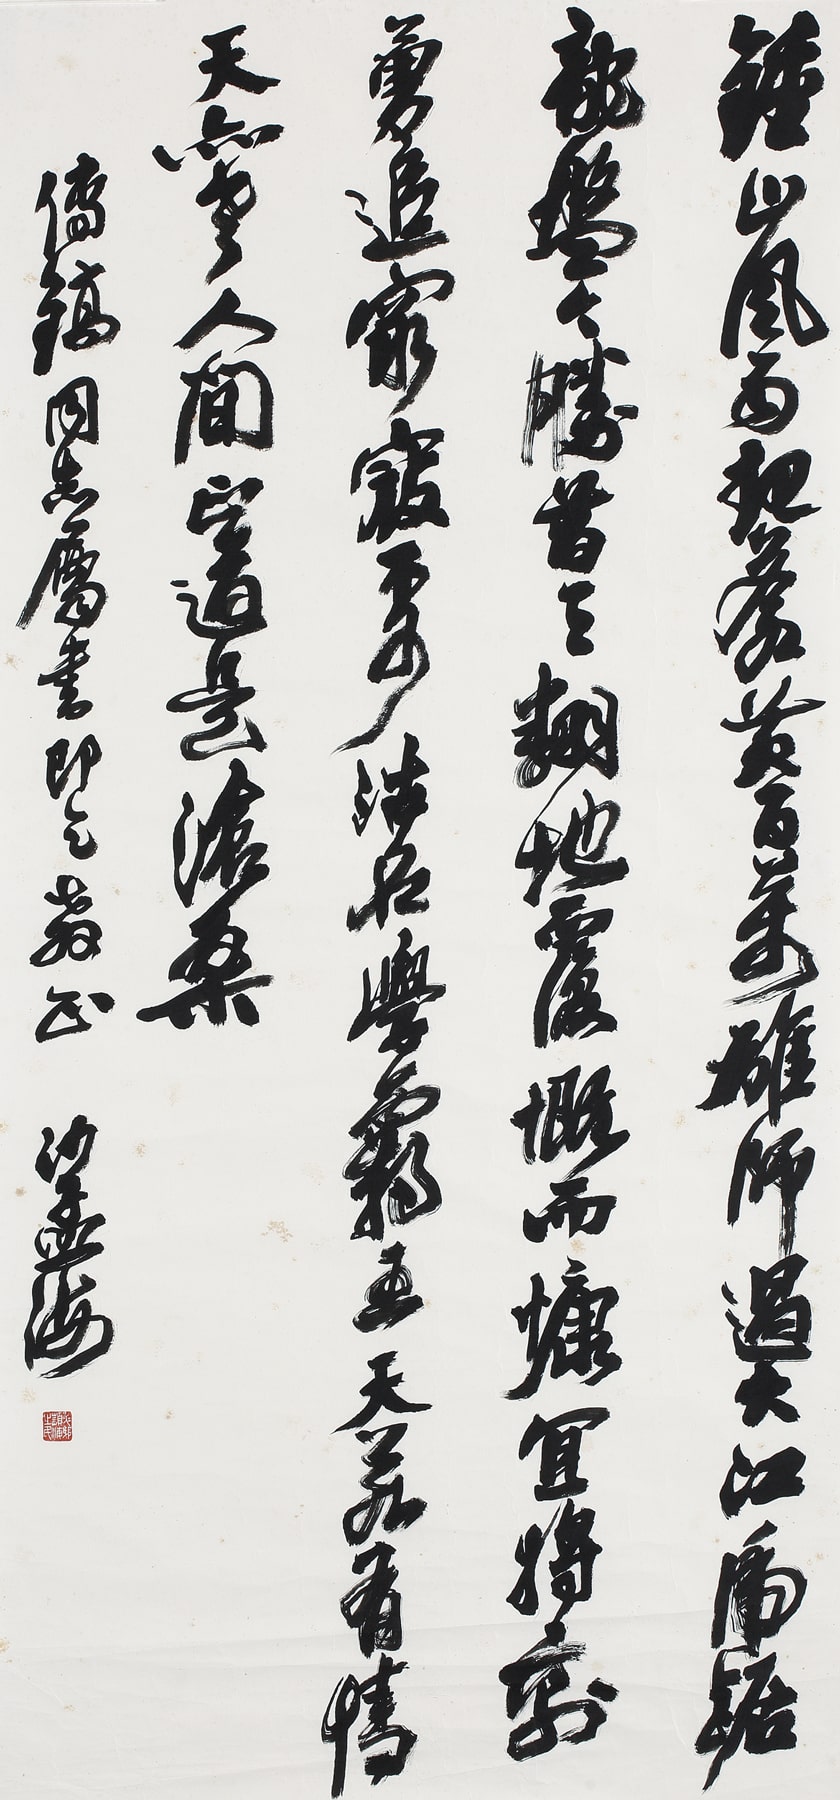 鍾山風雨起蒼黃百萬雄師過大江虎踞
龍盤今勝昔天翻地覆慨而慷宜將剩
勇追窮寇不可沽名學霸王天若有情
天亦老人間正道是滄桑
鎬同志屬書即乞教正 沙孟海